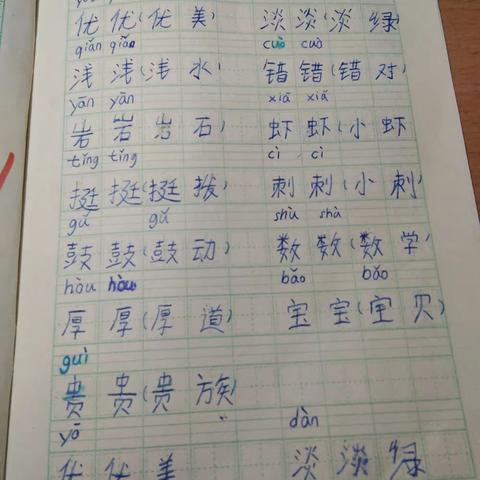 优 优(优 美) 淡 淡(淡 绿)
qiǎn qiǎn cuò cuò
浅 浅(浅 水) 错 错(错 对)
yán yán xiā xiā
岩 岩(岩 石) 虾 虾(小 虾
tǐng tǐng cì cì
挺 挺(挺 拔) 刺 刺(小 刺)
gǔ gǔ shù shù
鼓 鼓(鼓 动) 数 数(数 学)
hòu hòu bǎo bǎo
厚 厚(厚 道) 宝 宝(宝 贝)
guì
贵 贵(贵 族)
yō dàn
优 优 美 淡 淡 绿